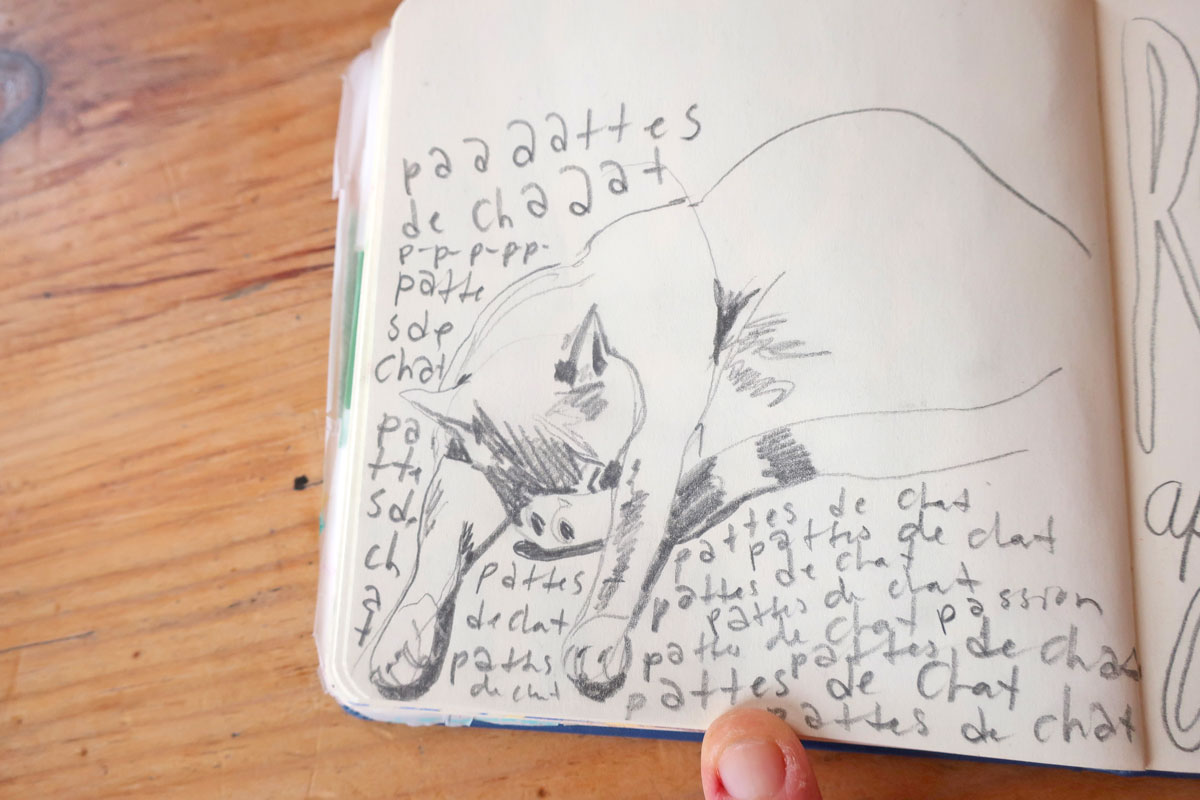 paaaattes
de chaaat
p-p-p-pp-
patte
sde
chat
pa
tte
sd
ch
a
t
pattes
de chat
pattes
de chat
pattes de chat
pattes de chat
pattes de chat
pattes de chat
pattes de chat passion
pattes de chat
pattes de chat
pattes de chat
R
ap